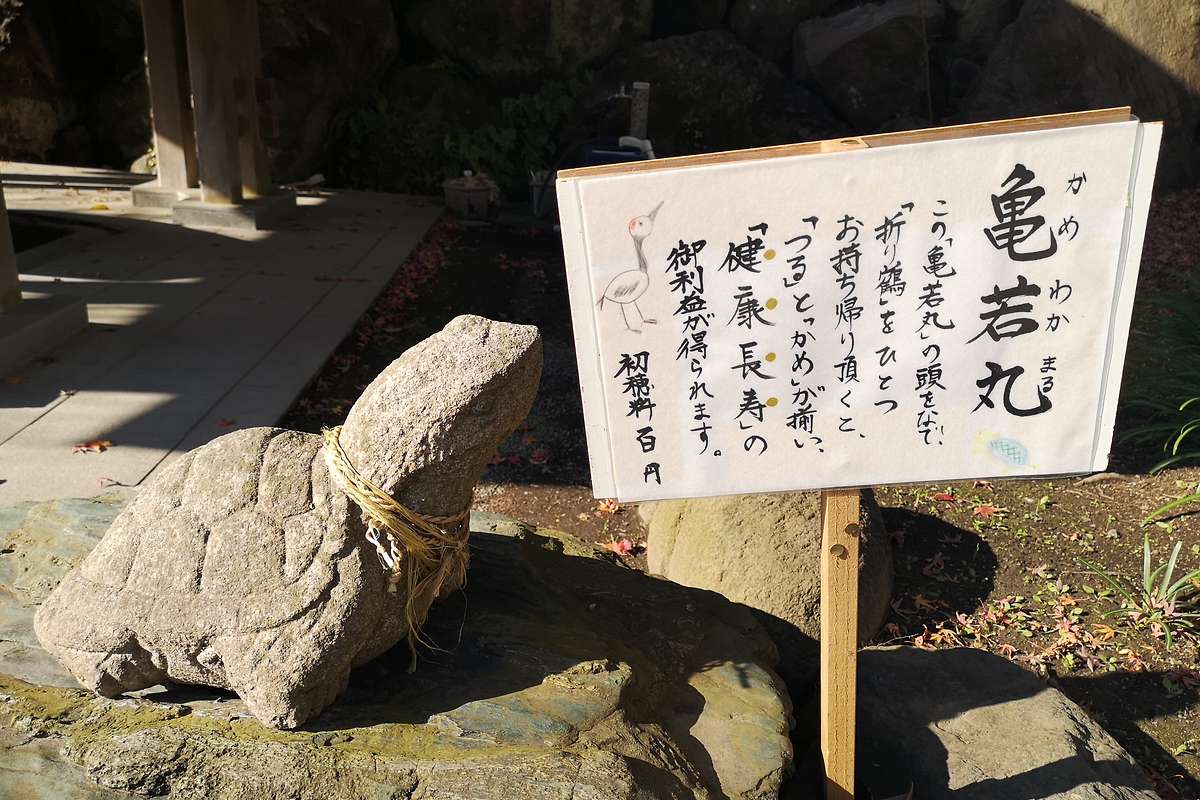 亀若丸
かめ わか まる
この「亀若丸」の頭をなで、
「折り鶴」をひとつ
お持ち帰り頂くこと、
「つる」と「かめ」が揃い、
「健康長寿」の
御利益が得られます。
初穂料 百円